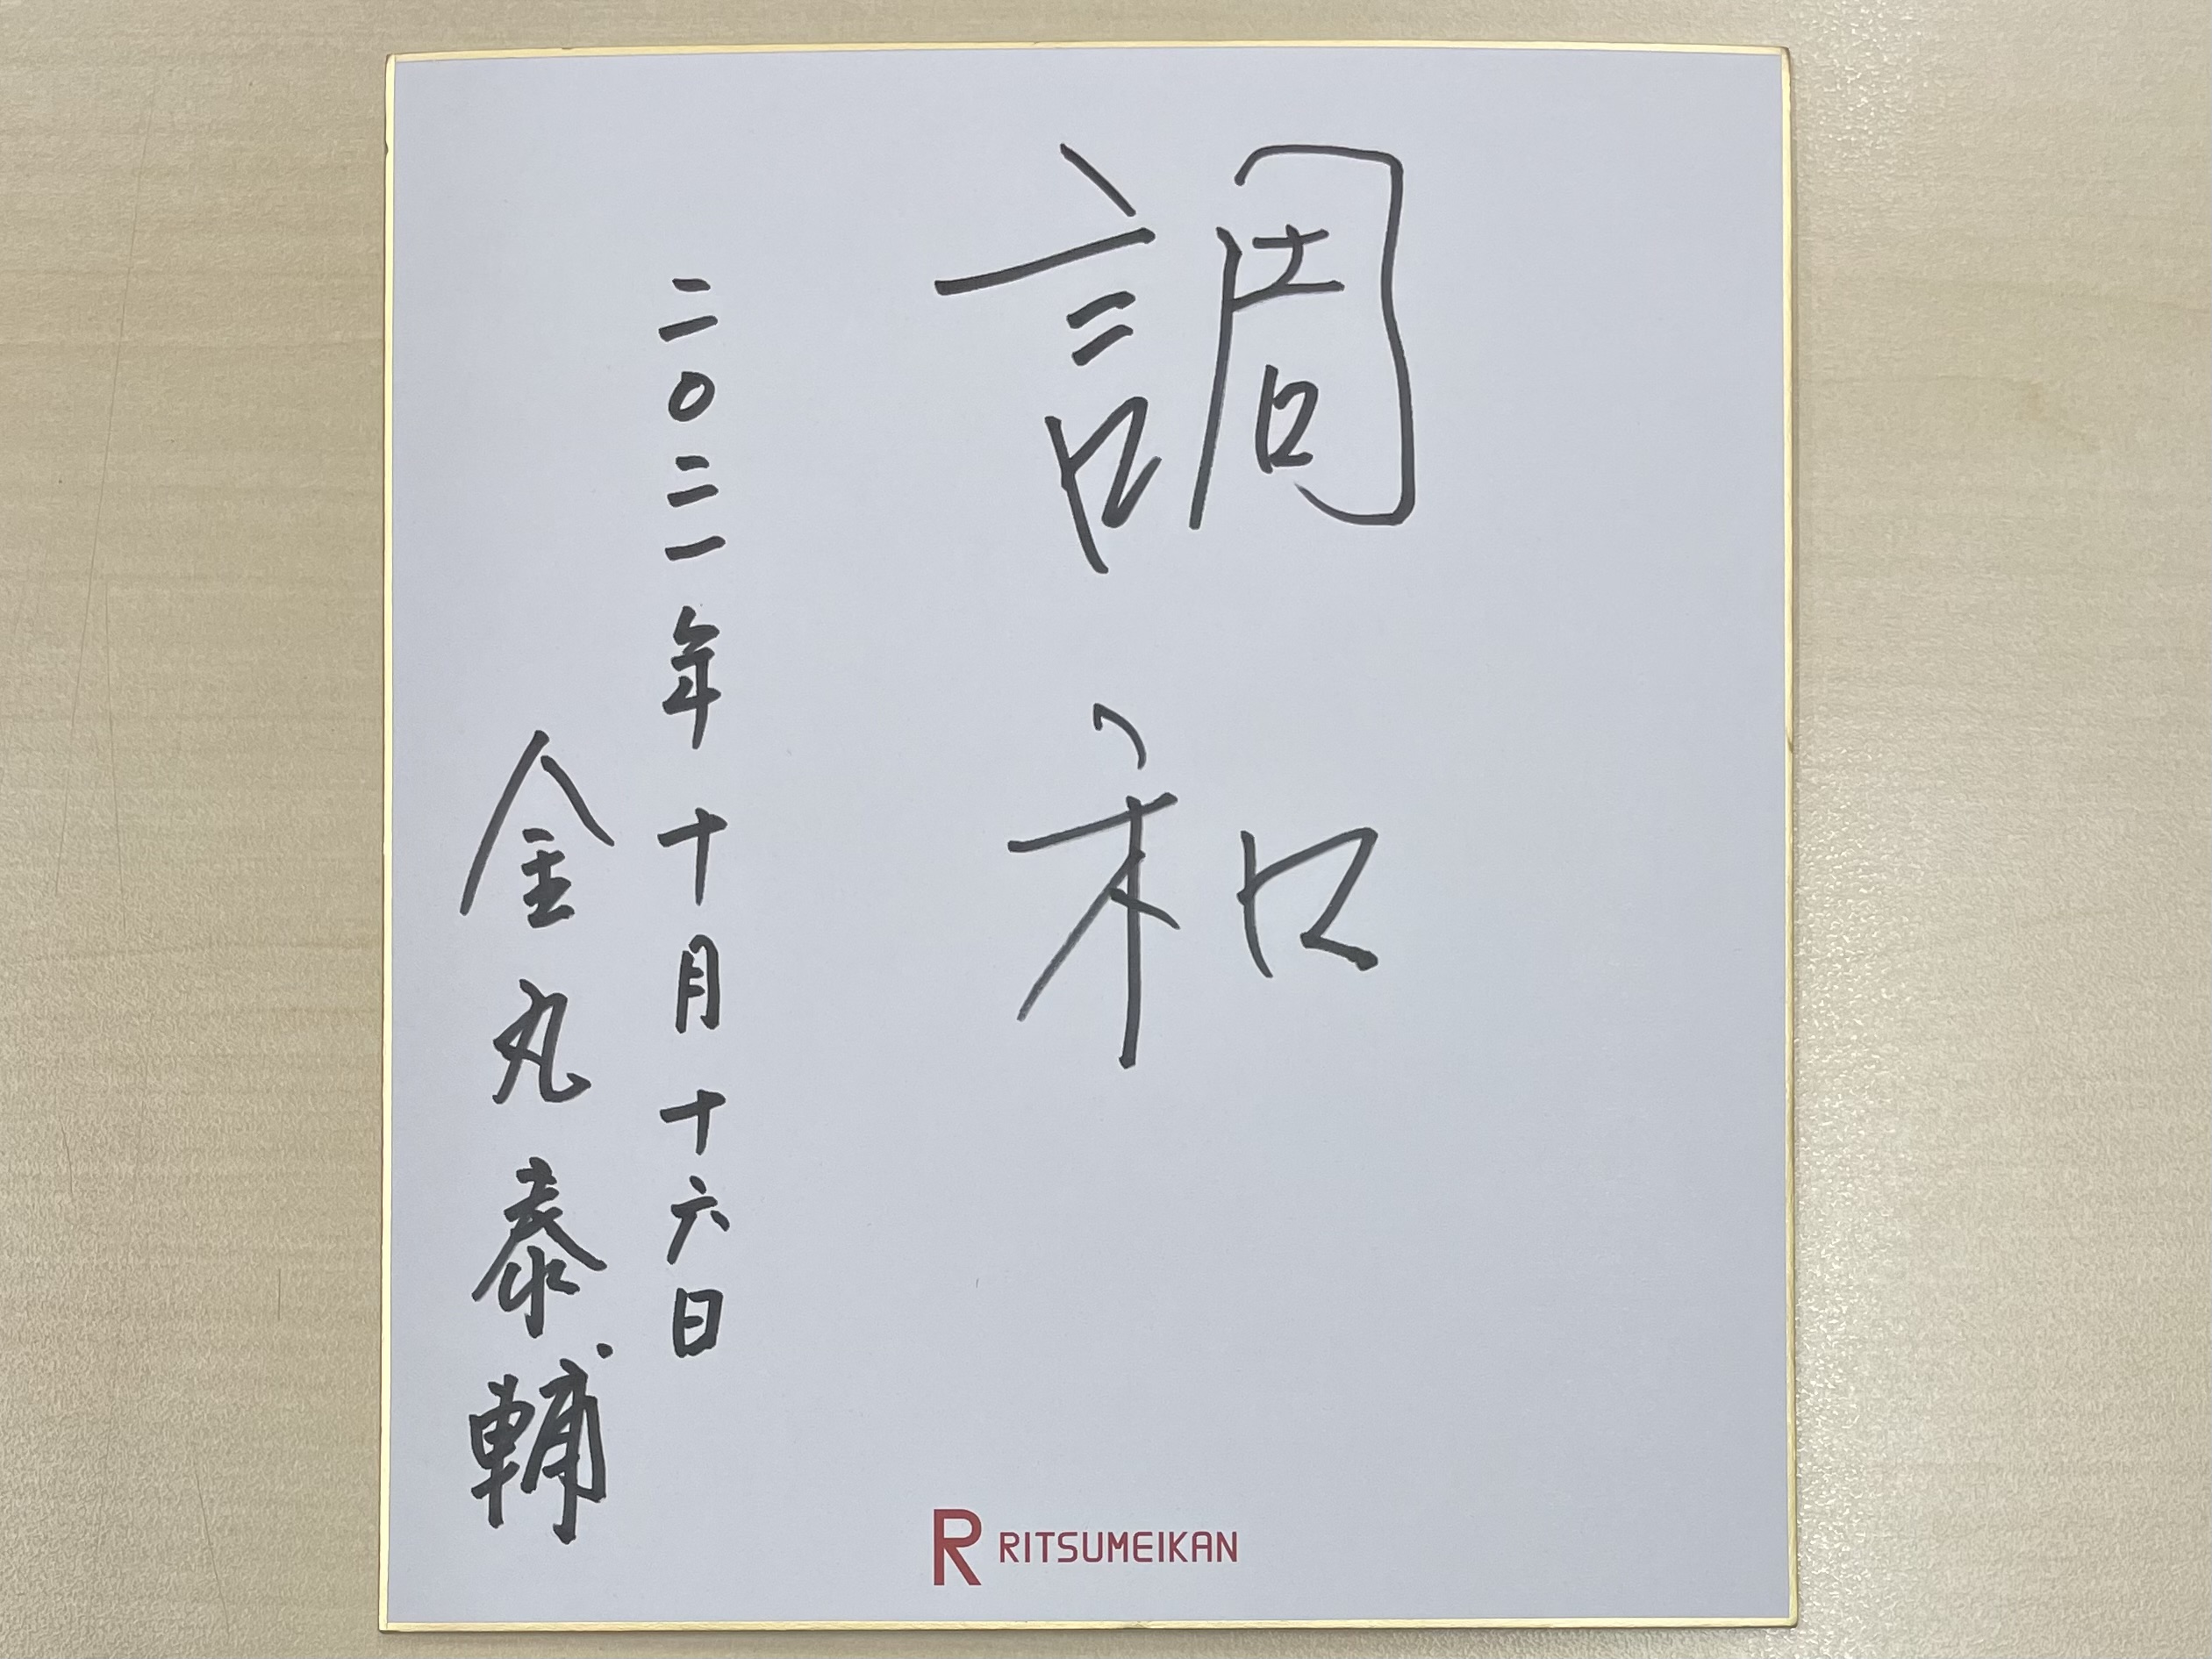 調和
二〇二一年十月十六日
金丸泰輔
R RITSUMEIKAN